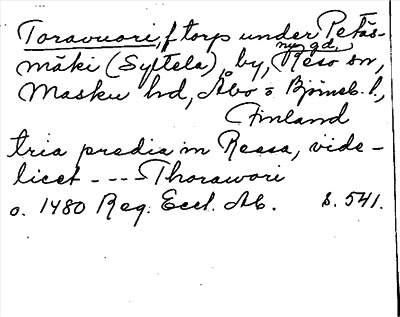 Toravuori, f torp under Petäs-
mäki (Syltela), by, Reso sn,
nu gd,
Masku hd, Åbo o Björneb. l,
Finland
tria predia in Resa, vide-
licet - - - Thorawori
o. 1480 Reg. Eccl. Ab. s. 541.